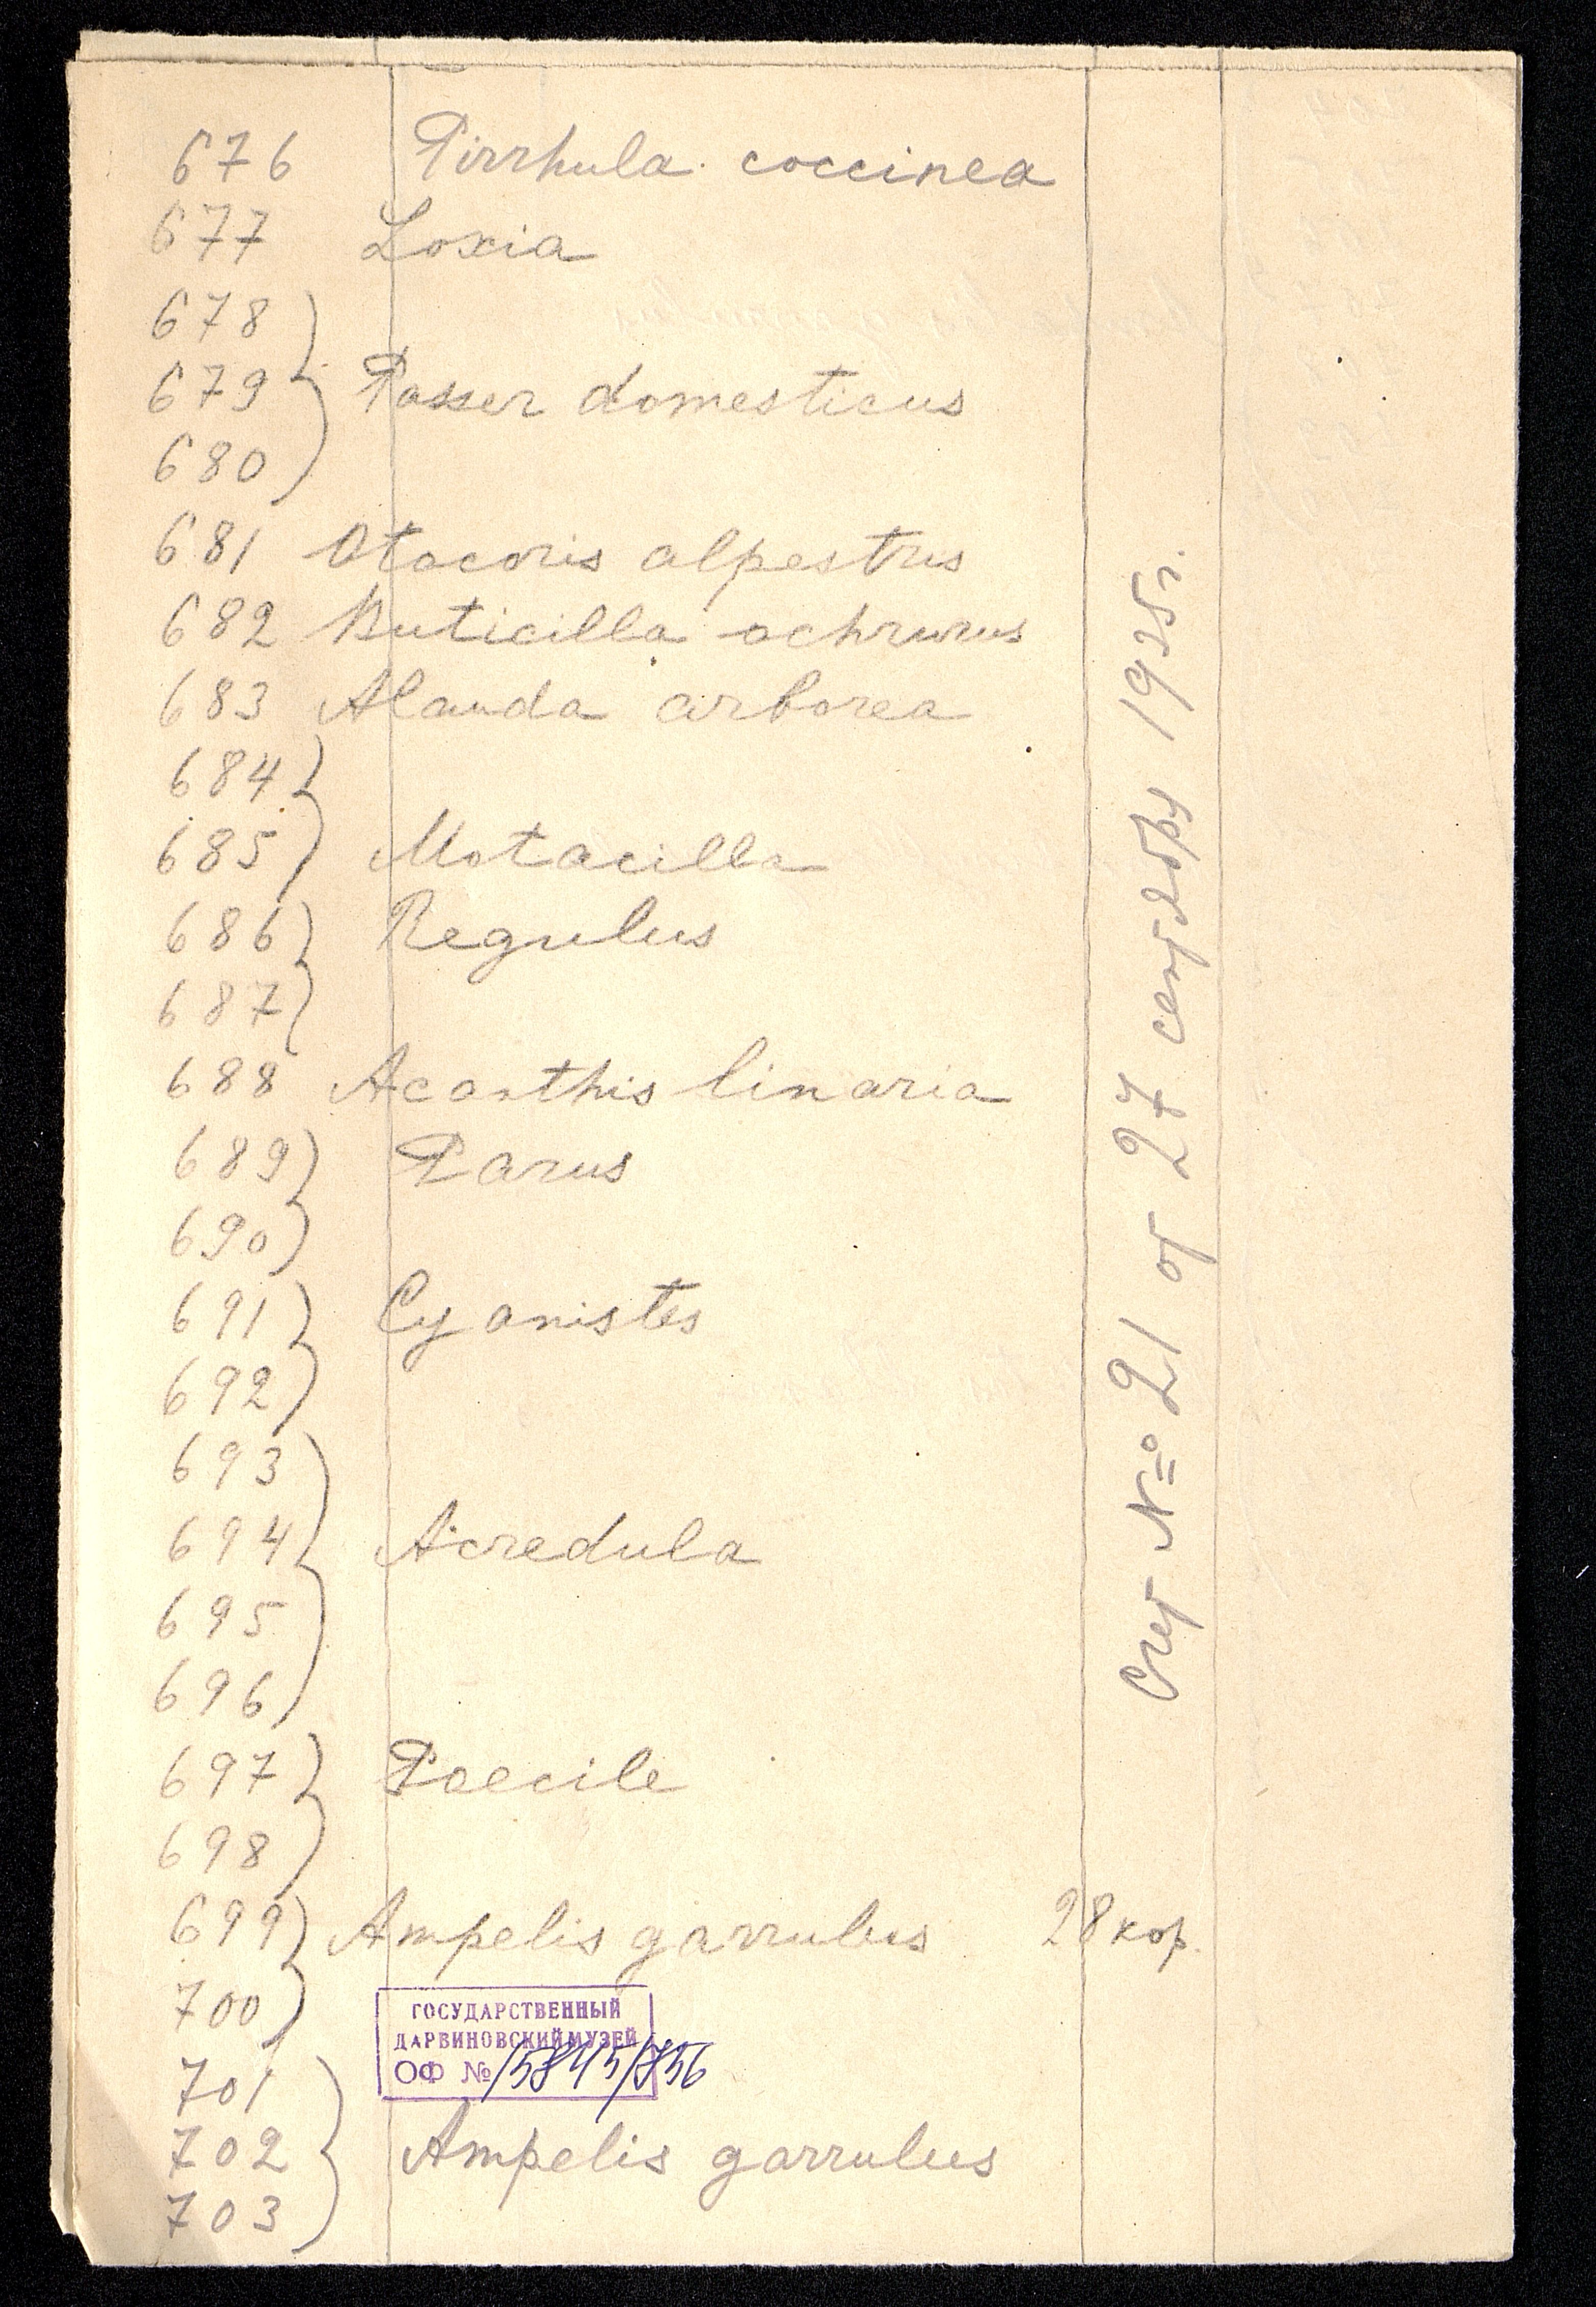 676 Pirrhula coccinea
677 Loxia
678
679 Passer domesticus
680
681 Otocoris alpestris
682 Ruticilla ochrurus
683 Alauda arborea
684
685 Motacilla
686 Regulus
687
688 Acanthis linaria
689 Parus
690
691 Cyanistes
692
693
694 Acredula
695
696
697 Poecile
698
699 Ampelis garrulus 28 кор.
700
ГОСУДАРСТВЕННЫЙ
ДАРВИНОВСКИЙ МУЗЕЙ
ОФ № 15845/856
701
702 Ampelis garrulus
703
Счет № 21 от 27 сентября 1925 г.